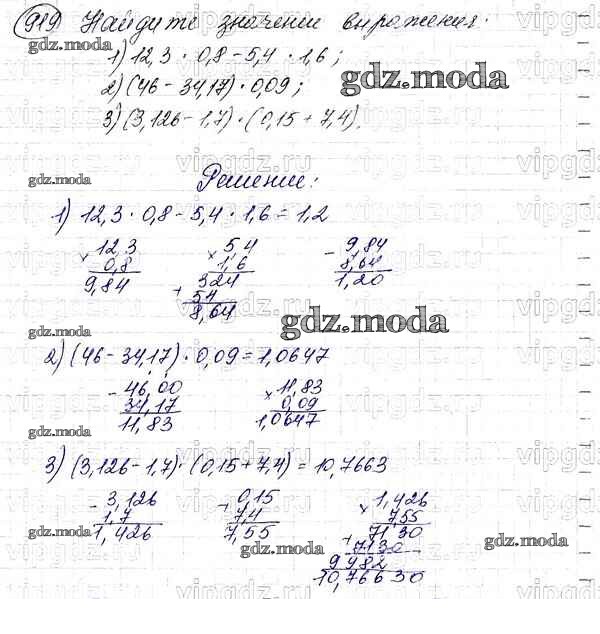 919 Найдите значении выражения:
1) 12,3 · 0,8 - 5,4 · 1,6;
gdz.moda
2) (46 - 34,17) · 0,09;
3) (3,126 - 1,7) · (0,15 + 7,4).
vipgdz.ru
gdz.moda
Решении:
1) 12,3 · 0,8 - 5,4 · 1,6 = 1,2
× 12,3 × 5,4 - 9,84
0,8 1,6 8,64
9,84 324 1,20
+ 54
8,64
gdz.moda
gdz.moda
2) (46 - 34,17) · 0,09 = 1,0647
- 46,00 × 11,83
34,17 0,09
11,83 1,0647
gdz.moda
3) (3,126 - 1,7) · (0,15 + 7,4) = 10,7663
- 3,126 + 0,15 × 1,426
1,7 7,4 7,55
1,426 7,55 7130
gdz.moda gdz.moda gdz.moda
+ 7130
9982
10,766630